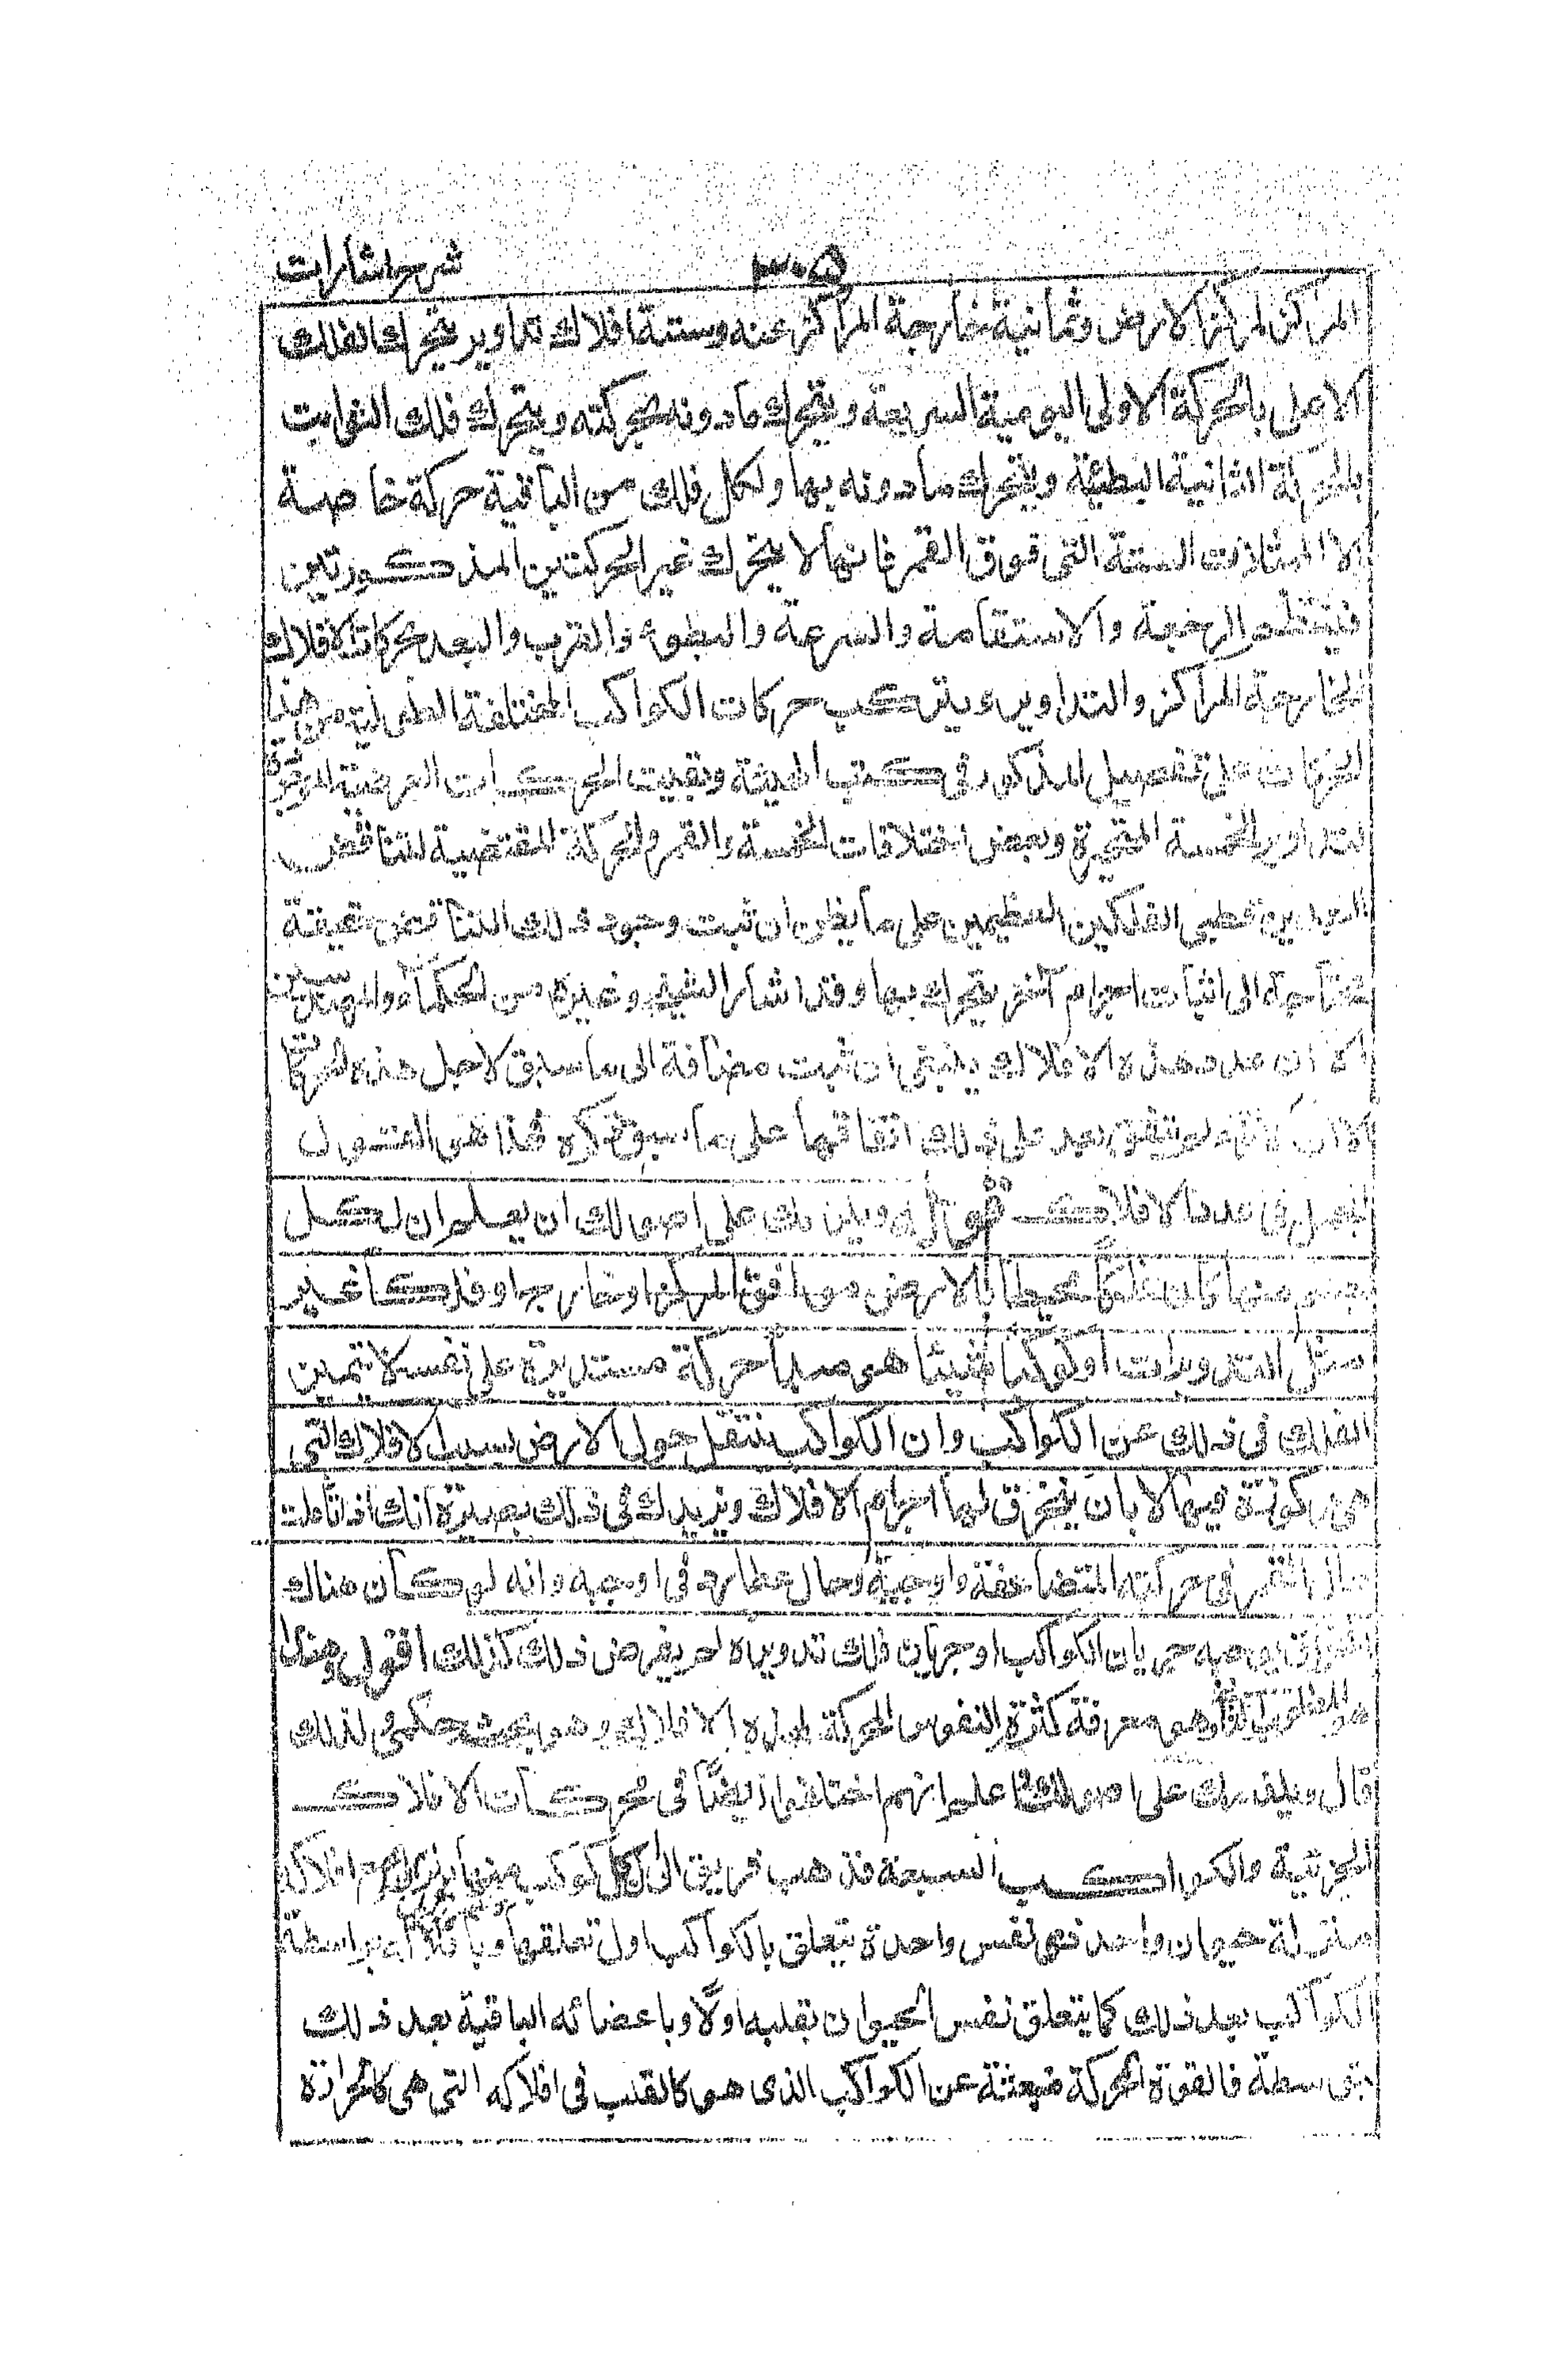 شرح اشارات
٣٠٥
المركز لمركز الارض وثمانية خارجة المراكز عنه وستة افلاك تداوير يتحرك الفلك
الاعلى بالحركة الاولى اليومية السريعة ويتحرك مادونه بحركته ويتحرك فلك الثوابت
بالحركة الثانية البطيئة ويتحرك مادونه بها ولكل فلك من الباقية حركة خاصة
الا الممثلات الستة التى فوق القمر فانها لا يتحرك غير الحركتين المذكورتين
فينتظم الرجعة والاستقامة والسرعة والبطوء والقرب والبعد بحركات الافلاك
الخارجة المراكز والتداوير ويتركب حركات الكواكب المختلفة الطولية من هذه
الحركات على تفصيل المذكور فى كتب الهيئة وبقيت الحركات العرضية الموجودة
لتداوير الخمسة المتحيرة وبعض اختلافات الخمسة والقمر والحركة المقتضية لتناقض
البعد بين قطبى الفلكين العظيمين على ما يظن ان ثبت وجود ذلك التناقض حقيقة
محتاجة الى اثبات اجرام آخر يتحرك بها وقد اشار الشيخ وغيره من الحكماء والمهندسين
الا ان عدد هذه الافلاك ينبغى ان ثبت مضافة الى ما سبق لاجل هذه
الا ان لم يتفق بعد على ذلك اتفاقها على ما سبق ذكره فهذا هو القول
المجمل فى عدد الافلاك قوله ويلزمك على اصولك ان يعلم ان لكل
جسم منها كان فلكا محيطا بالارض موافق المركز او خارجا او فلكا غير
مثل التدويرات او كوكبا شيئا هو مبدأ حركة مستديرة على نفسه لا يتميز
الفلك فى ذلك عن الكواكب وان الكواكب تنتقل حول الارض بسبب الافلاك التى
هى مركوزة فيها لا بان يتخرق لها اجرام الافلاك ونزيدك فى ذلك بصيرة انك اذ تاملت
حال القمر فى حركته المتضاعفة واوجيه وحال عطارد فى اوجيه وانه لو كان هناك
انخراق يوجبه جريان الكواكب او جريان فلك تدويره لم يفرض ذلك كذلك اقول وهذا
هو وهو معرفة كثرة النفوس المحركة لهذه الافلاك وهو بحث حكمى لذلك
قال ويلزمك على اصولك اعلم انهم اختلفوا ايضا فى محركات الافلاك
الجزئية والكواكب السبعة فذهب فريق الى ان كل كوكب منها ينزل مع افلاكه
منزلة حيوان واحد فهى نفس واحدة يتعلق بالكواكب اول تعلقها وبافلاكه بواسطة
الكواكب بعد ذلك كما يتعلق نفس الحيوان بقلبه اولا وباعضائه الباقية بعد ذلك
بتوسطه فالقوة المحركة منبعثة عن الكواكب الذى هو كالقلب فى افلاكه التى هى كالجوارح